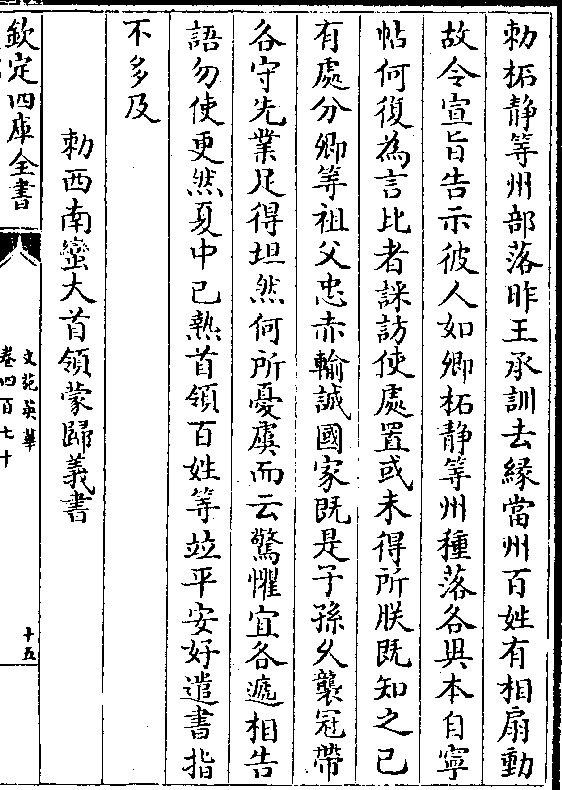 勅柘静等州部落昨王承訓去縁當州百姓有相扇動
故令宣旨告示彼人如卿柘静等州種落各與本自寧
帖何復為言比者誺訪使處置或未得所朕既知之已
有處分卿等祖父忠赤輸誠國家既是子孫乆襲冠帶
各守先業足得坦然何所憂虞而云驚懼宜各遞相告
語勿使更然夏中已熱首領百姓等並平安好遣書指
不多及
勅西南蠻大首領蒙歸義書
欽定四庫全書
文苑英華
卷四百七十
十五